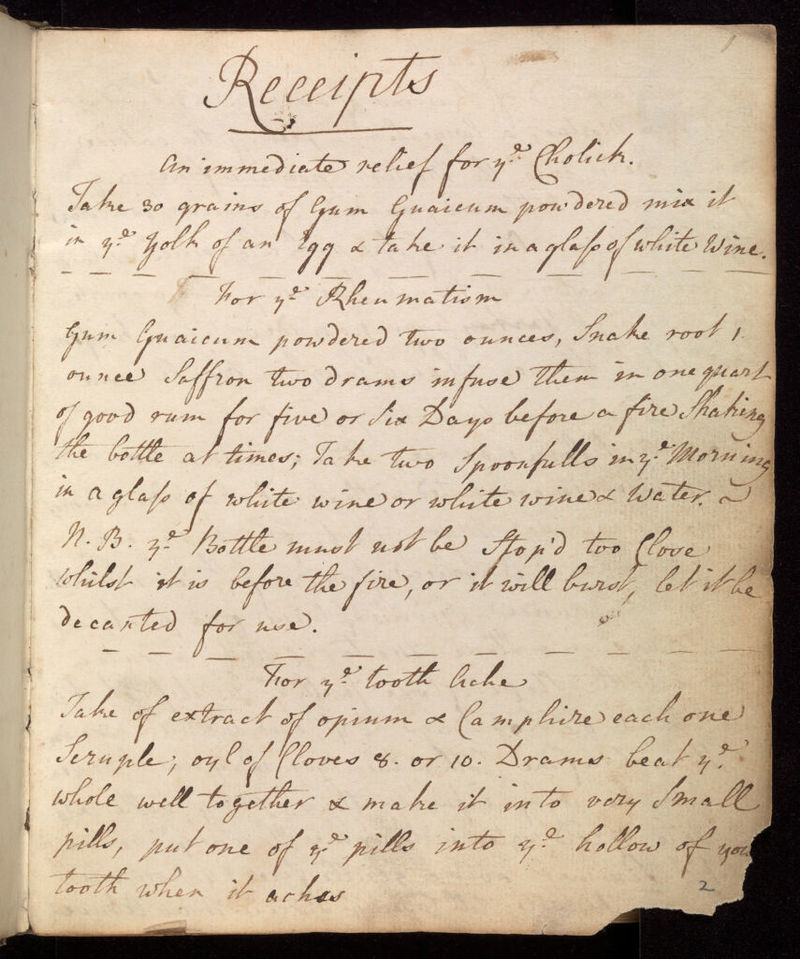 1
Receipts
An immediate relief for ye Cholick.
Take 30 grains of Gum Guaicum powdered mix it
in ye Yolk of an Egg & take it in a glass of white Wine.
For ye Rheumatism
Gum Guaicum powdered two ounces, Snake root 1
ounce Saffron two drams infuse them in one quart
of good rum for five or Six Days before a fire Shaking
the bottle at times; Take two Spoonfulls in ye Morning
in a glass of white wine or white wine & Water.
N. B. ye Bottle must not be Stop'd too Close
whilst it is before the fire, or it will burst, let it be
decanted for use.
For ye tooth Ache
Take of extract of opium & Camphire each one
Scruple; oyl of Cloves 8. or 10. Drams beat ye
whole well together & make it into very Small
pills, put one of ye pills into ye hollow of you
tooth when it aches
2